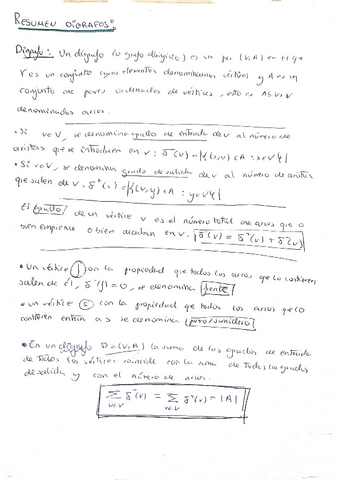 RESUMEN DIGRAFOS:
Digrafo: Un digrafo (o grafo dirigido) es un par (V,A) en el que
V es un conjunto cuyos elementos denominamos vértices y A es un
conjunto de pares ordenados de vértices, esto es A⊆V×V
denominados arcos.
• Si v∈V, se denomina grado de entrada de v al número de
aristas que se introducen en v: δ⁻(v)=|{(x,v)∈A : x∈V}|
• Si v∈V, se denomina grado de salida de v al número de aristas
que salen de v. δ⁺(v)=|{(v,y)∈A : y∈V}|
El grado de un vértice v es el número total de arcos que o
bien empiezan o bien acaban en v. δ(v) = δ⁺(v) + δ⁻(v)
• Un vértice f con la propiedad que todos los arcos que lo contienen
salen de él, δ⁻(f)=0, se denomina fuente
• un vértice s con la propiedad que todos los arcos que lo
contienen entran a s se denomina pozo/sumidero
• En un digrafo D=(V,A) la suma de los grados de entrada
de todos los vértices coincide con la suma de todos los grados
de salida y con el número de arcos.
∑ δ⁻(v) = ∑ δ⁺(v) = |A|
v∈V v∈V